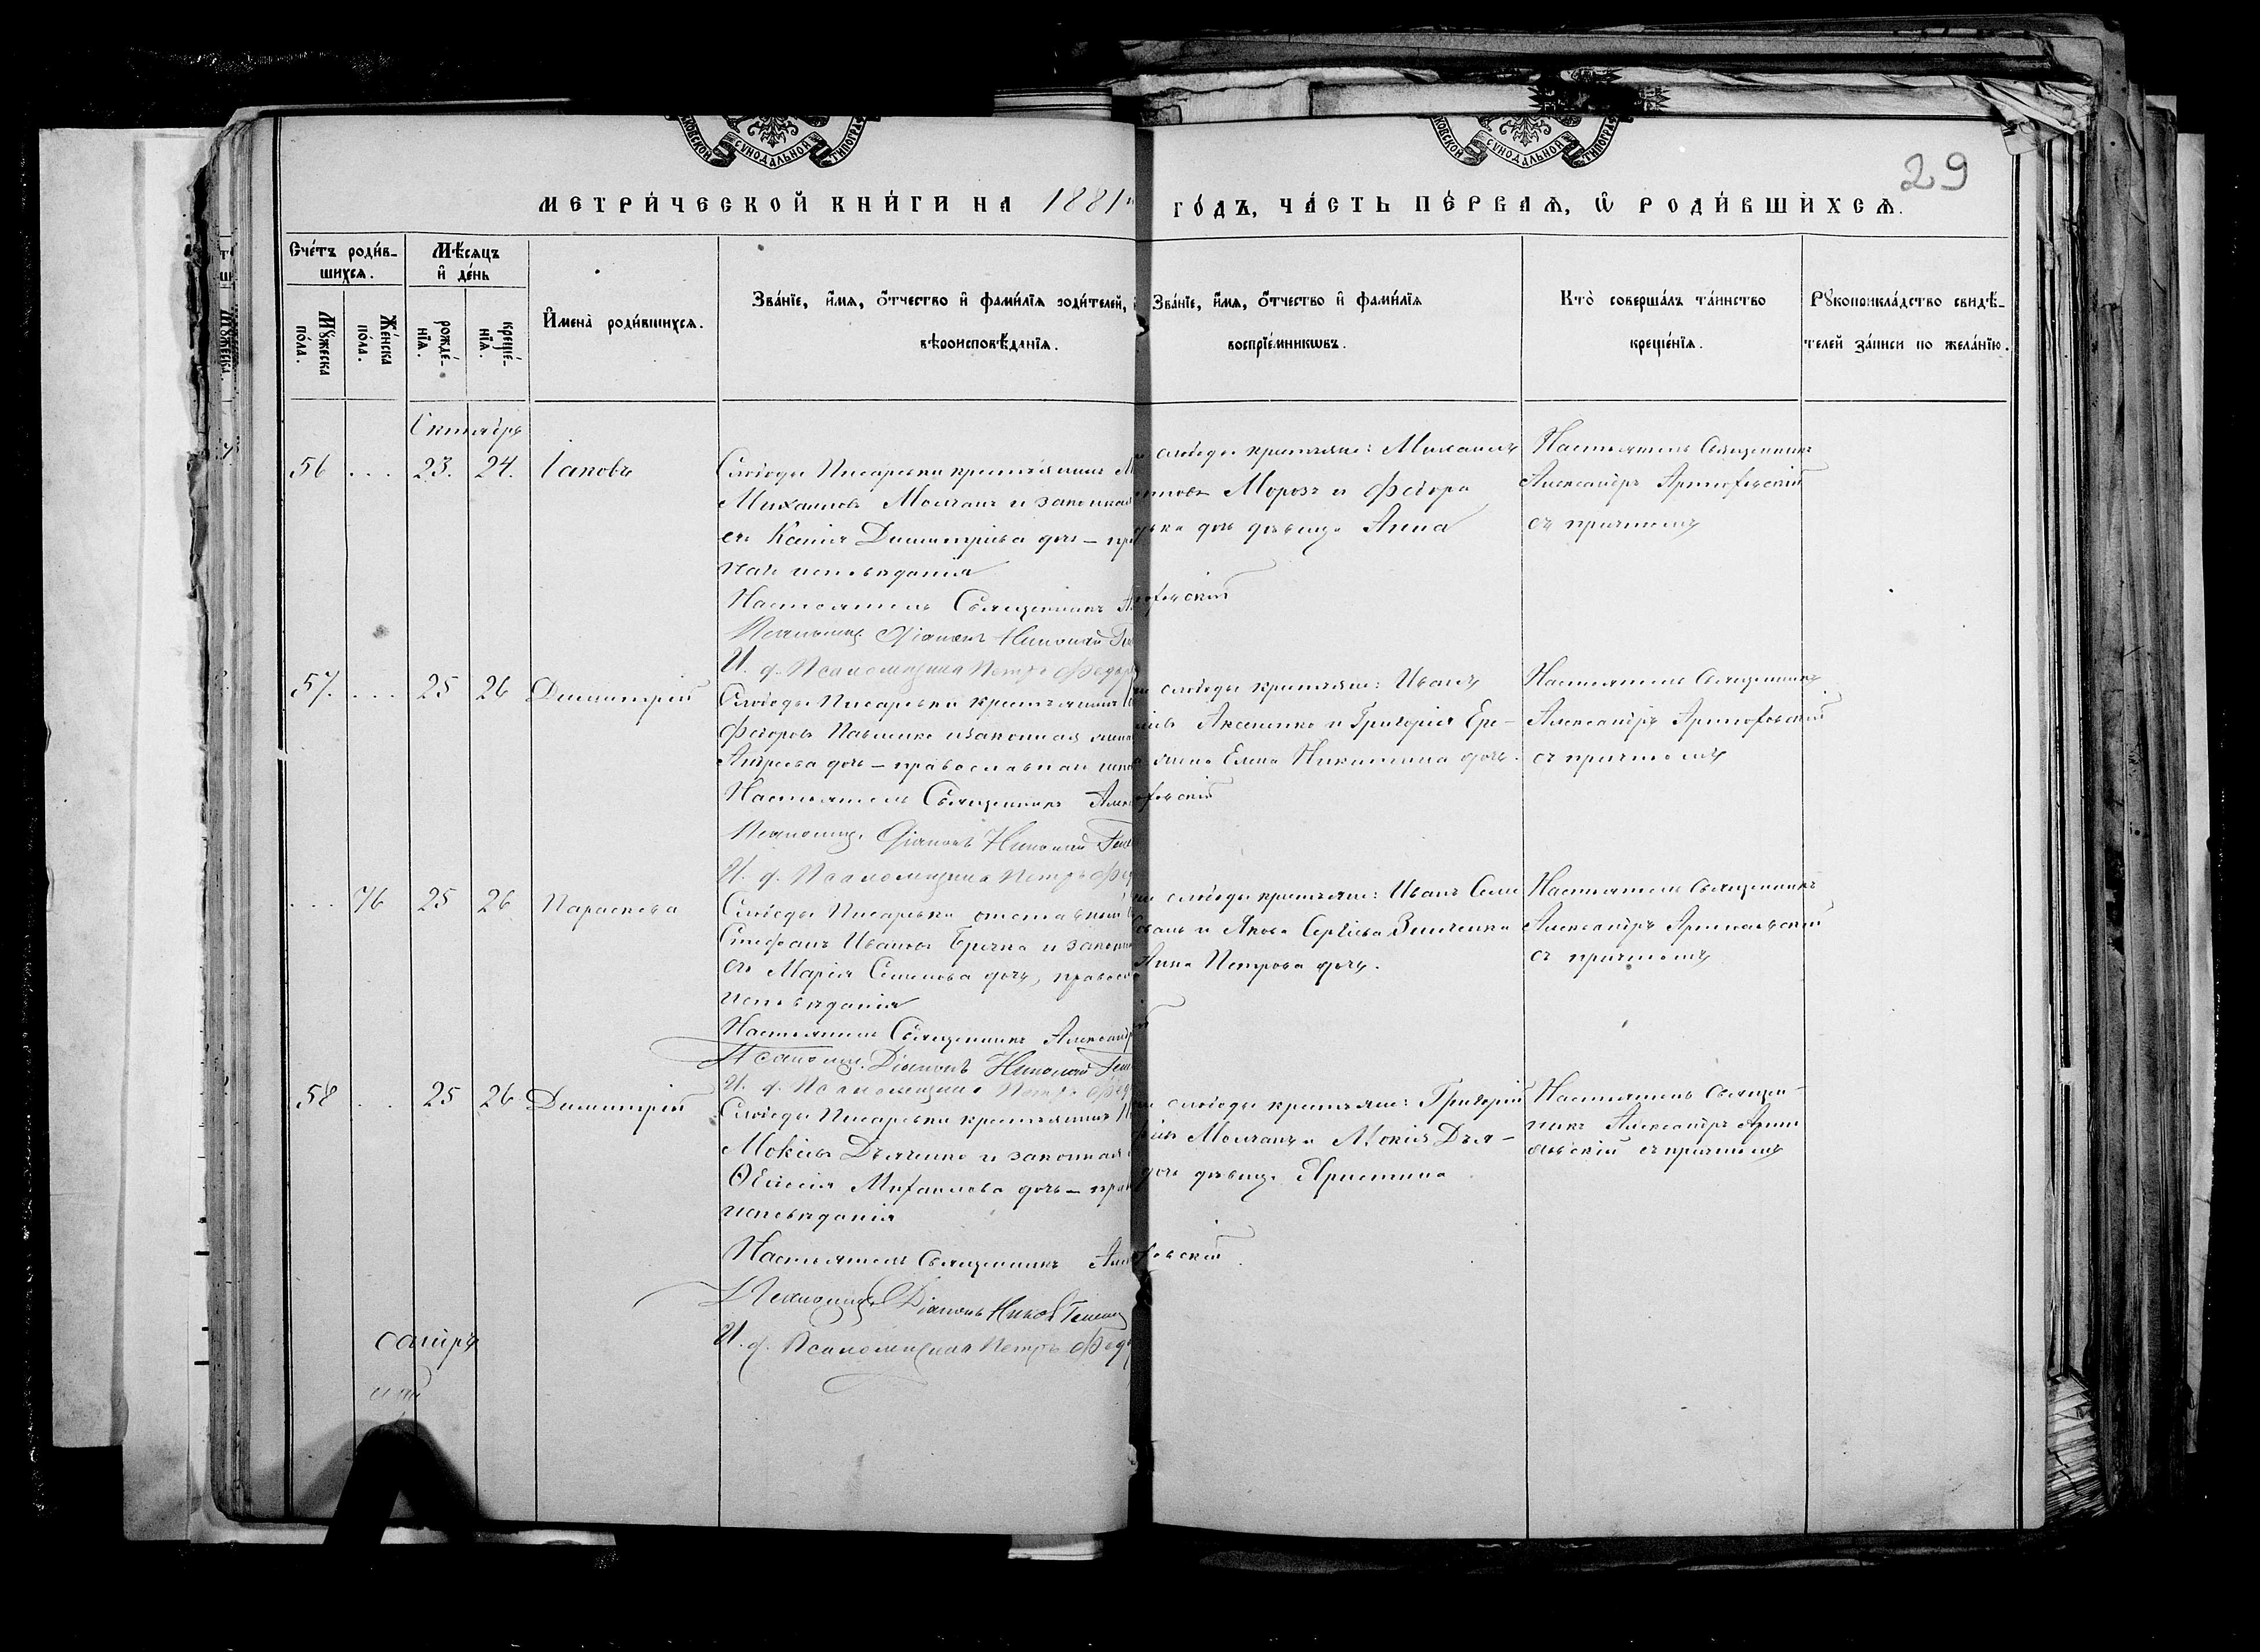 МОСКОВСКОЙ СУНОДАЛЬНОЙ ТИПОГРАФ
МОСКОВСКОЙ СУНОДАЛЬНОЙ ТИПОГРАФ
29
МЕТРИ́ЧЕСКОЙ КНИ́ГИ НА 1881й ГО́ДЪ, ЧА́СТЬ ПЕ́РВАѦ, Ѡ РОДИ́ВШИХСѦ.
Сче́тъ роди́в-
шихсѧ.
Мѣ́сѧцъ
и҆ де́нь
Мꙋ́жеска
по́ла.
Же́нска
по́ла.
рожде́-
нїѧ.
креще́-
нїѧ.
И҆мена̀ роди́вшихсѧ.
Зва́нїе, и҆́мѧ, ѻ҆́тчество и҆ фами́лїѧ роди́телей,
вѣроисповѣ́данїѧ.
Зва́нїе, и҆́мѧ, ѻ҆́тчество и҆ фами́лїѧ
воспрїе́мникѡвъ.
Кто̀ соверша́лъ та́инство
креще́нїѧ.
Рꙋкоприкла́дство свидѣ́-
телей за́писи по жела́нїю.
Октябрь
56 ... 23. 24. Іаковъ
Слободы Писаревки крестьянинъ
Михаиловъ Молчанъ и законная
ея Ксенія Димитріева дочь – пр
наго исповѣданія
Настоятель Священникъ
Псаломщ. Діаконъ Николай
И. д. Псаломщика Петръ Федор
слободы крестьяне: Михаилъ
Морозъ и Феодора
дочь дѣвица Анна
Настоятель Священникъ
Александръ Артюховскій
съ причтомъ
57. ... 25 26 Димитрій
Слободы Писаревки крестьянинъ
Феодоровъ Павленко и законная жена
Андреева дочь – православнаго испо
Настоятель Священникъ Алек
Псаломщ. Діаконъ Николай
И. д. Псаломщика Петръ Фед
слободы крестьяне: Иванъ
Аксененко и Григорія Ере-
жена Елена Никитина дочь.
Настоятель Священникъ
Александръ Артюховскій
съ причтомъ
... 76 25 26 Параскева
Слободы Писаревки отставной
Стефанъ Ивановъ Бречка и законн
его Марія Семенова дочь, правос
исповѣданія
Настоятель Священникъ Александр
Псаломщ. Діаконъ Николай
И. д. Псаломщика Петръ Фед
слободы крестьяне: Иванъ
и Якова Сергіева Зинченка
Анна Петрова дочь.
Настоятель Священникъ
Александръ Артюховскій
съ причтомъ
58 .. 25 26 Димитрій
Слободы Писаревки крестьянинъ
Мокіевъ Дьяченко и законная
Михаилова дочь – прав
исповѣданія
Настоятель Священникъ Алек
Псаломщ. Діаконъ Никол
И. д. Псаломщика Петръ Федор
слободы крестьяне: Григорій
Молчанъ и Мокія Дья-
дочь дѣвица Христина
Настоятель Священ-
никъ Александръ Артю
ховскій съ причтомъ